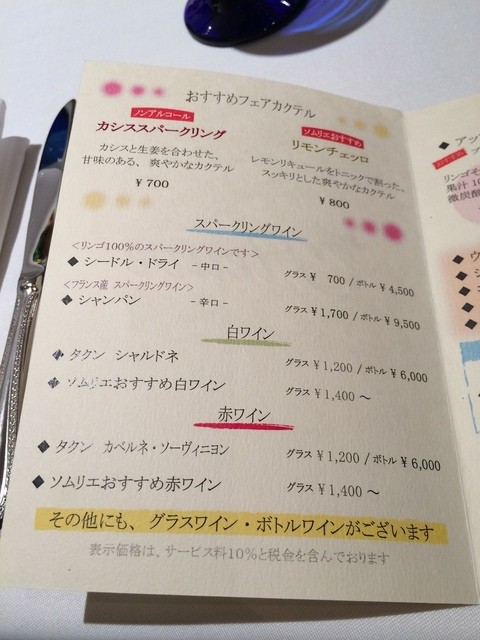 おすすめフェアカクテル
ノンアルコール
カシススパークリング
カシスと生姜を合わせた、
甘味のある、爽やかなカクテル
¥700
ソムリエおすすめ
リモンチェッロ
レモンリキュールをトニックで割った、
スッキリとした爽やかなカクテル
¥800
スパークリングワイン
<リンゴ100%のスパークリングワインです>
◆ シードル・ドライ －中口－ グラス ¥ 700 / ボトル ¥ 4,500
<フランス産 スパークリングワイン>
◆ シャンパン －辛口－ グラス ¥ 1,700 / ボトル ¥ 9,500
白ワイン
◆ タクン シャルドネ グラス ¥ 1,200 / ボトル ¥ 6,000
◆ ソムリエおすすめ白ワイン グラス ¥ 1,400 ～
赤ワイン
◆ タクン カベルネ・ソーヴィニヨン グラス ¥ 1,200 / ボトル ¥ 6,000
◆ ソムリエおすすめ赤ワイン グラス ¥ 1,400 ～
その他にも、グラスワイン・ボトルワインがございます
表示価格は、サービス料10%と税金を含んでおります
◆ アッ
おすすめ
リンゴそ
果汁 10
微炭酸